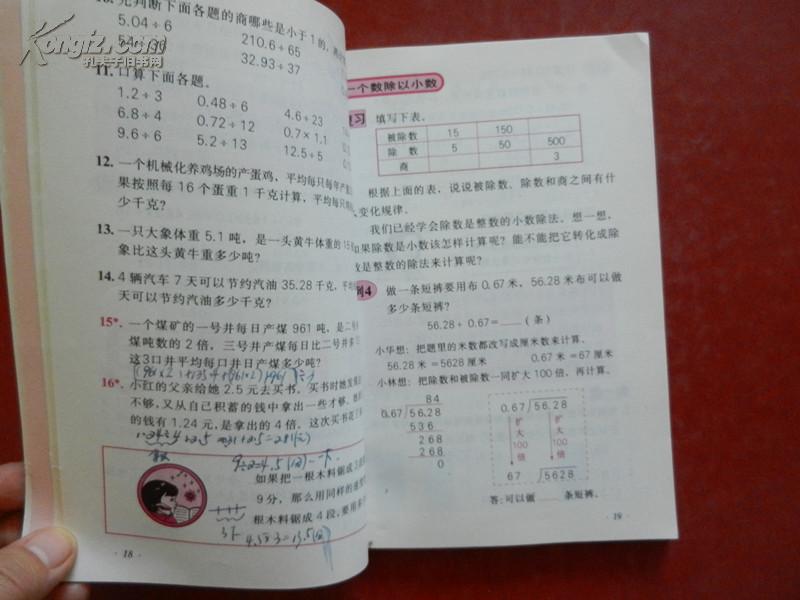 Kongfz.com
孔夫子旧书网
先判断下面各题的商哪些是小于1的，再
5.04÷6 210.6÷65
54. 32.93÷37
11. 口算下面各题。
1.2÷3 0.48÷6 4.6÷23
6.8÷4 0.72÷12 0.7×1.1
9.6÷6 5.2÷13 12.5÷5
12. 一个机械化养鸡场的产蛋鸡，平均每只每年产蛋
果按照每16个蛋重1千克计算，平均每只
少千克？
13. 一只大象体重5.1吨，是一头黄牛体重的15
象比这头黄牛重多少吨？
14. 4辆汽车7天可以节约汽油35.28千克，平均
天可以节约汽油多少千克？
15*. 一个煤矿的一号井每日产煤961吨，是二号
煤吨数的2倍，三号井产煤每日比二号井多
这3口井平均每口井日产煤多少吨？
16*. 小红的父亲给她2.5元去买书。买书时她发现
不够，又从自己积蓄的钱中拿出一些才够。她
的钱有1.24元，是拿出的4倍。这次买书花了
9÷2=4.5(分)
如果把一根木料锯成3段
9分，那么用同样的速度
根木料锯成4段，要用多
4.5×3=13.5(分)
· 18 ·
一个数除以小数
复习 填写下表。
被除数 15 150
除数 5 50 500
商 3
根据上面的表，说说被除数、除数和商之间有什
么变化规律。
我们已经学会除数是整数的小数除法。想一想，
如果除数是小数该怎样计算呢？能不能把它转化成除
数是整数的除法来计算呢？
例4 做一条短裤要用布0.67米，56.28米布可以做
多少条短裤？
56.28÷0.67=____(条)
小华想：把题里的米数都改写成厘米数来计算。
56.28米=5628厘米 0.67米=67厘米
小林想：把除数和被除数一同扩大100倍，再计算。
84
0.67 56.28
536
268
268
0
0.67 56.28
扩大100倍 扩大100倍
67 5628
答：可以做____条短裤。
· 19 ·